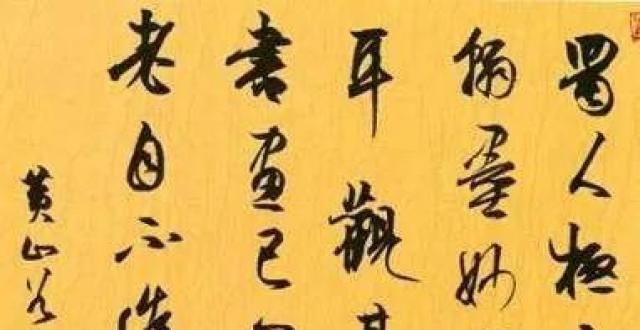 蜀人極
翰墨妙
耳觀
書画已
老自不
黄山谷